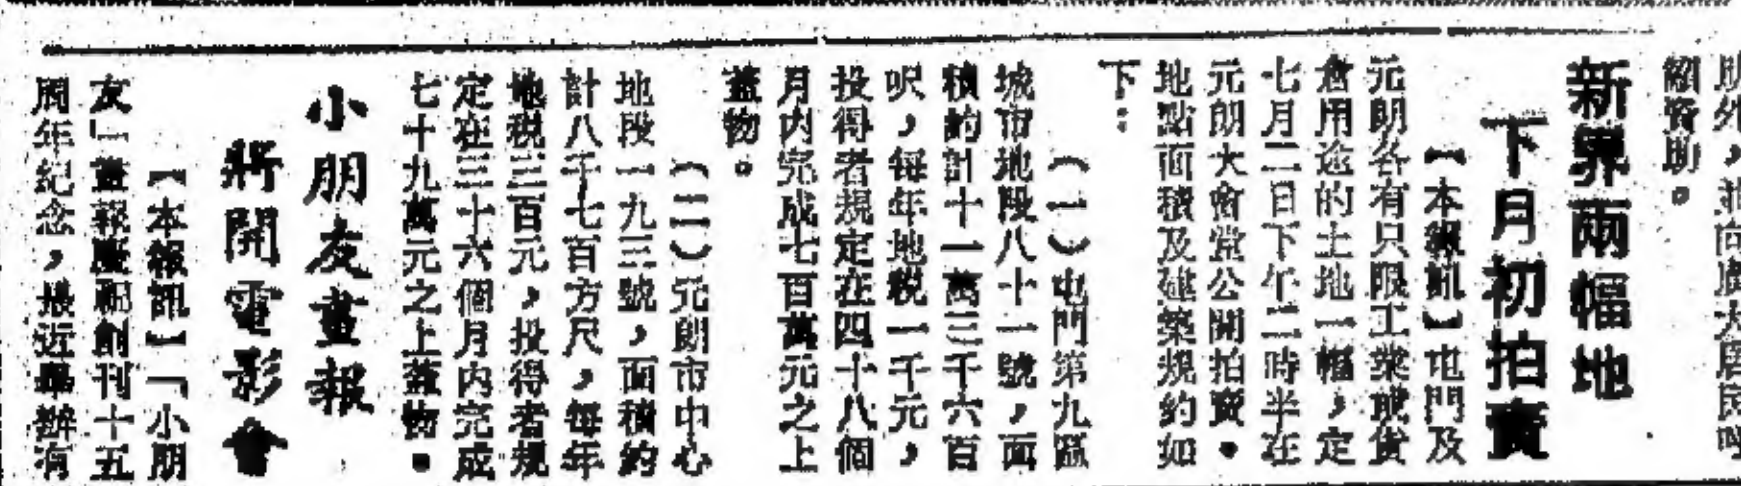 朋外，並向廣大居民呼
籲資助。
新界兩幅地
下月初拍賣
【本報訊】屯門及
元朗各有只限工業或貨
倉用途的土地一幅，定
七月二日下午二時半在
元朗大會堂公開拍賣。
地點面積及建築規約如
下：
（一）屯門第九區
城市地段八十一號，面
積約計十一萬三千六百
呎，每年地稅一千元，
投得者規定在四十八個
月內完成七百萬元之上
蓋物。
（二）元朗市中心
地段一九三號，面積約
計八千七百方尺，每年
地稅三百元，投得者規
定在三十六個月內完成
七十九萬元之上蓋物。
小朋友畫報
將開電影會
【本報訊】「小朋
友」畫報慶祝創刊十五
周年紀念，最近舉辦有